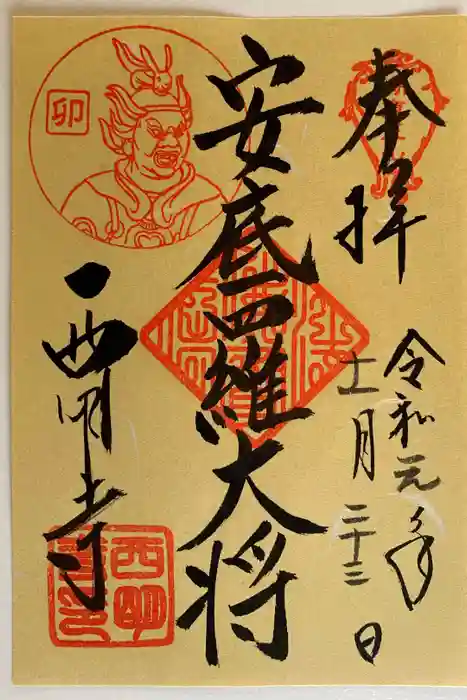 奉拝
令和元年
十一月二十三日
安底羅大将
卯
西明寺
西明